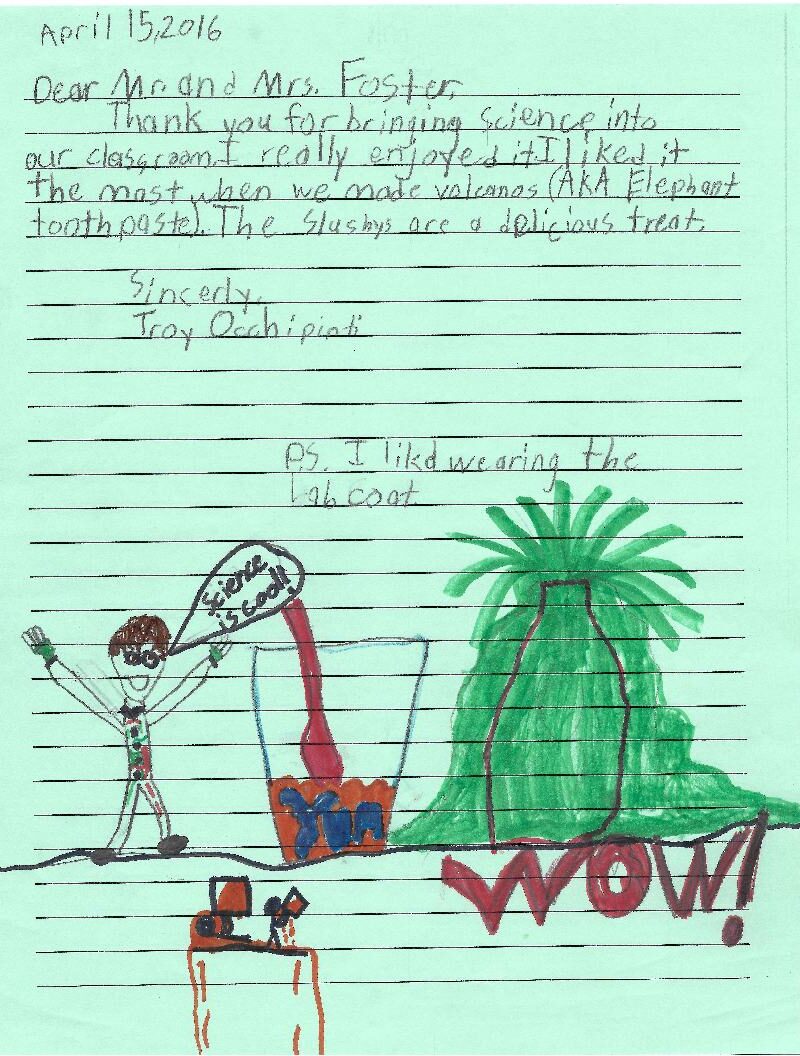 April 15, 2016
Dear Mr. and Mrs. Foster,
Thank you for bringing science into
our classroom. I really enjoyed it. I liked it
the most when we made volcanos (AKA Elephant
toothpaste). The slushys are a delicious treat.
Sincerly,
Troy Occhipinti
P.S. I likd wearing the
Lab coat
Science
is cool!!
Yum
WOW!